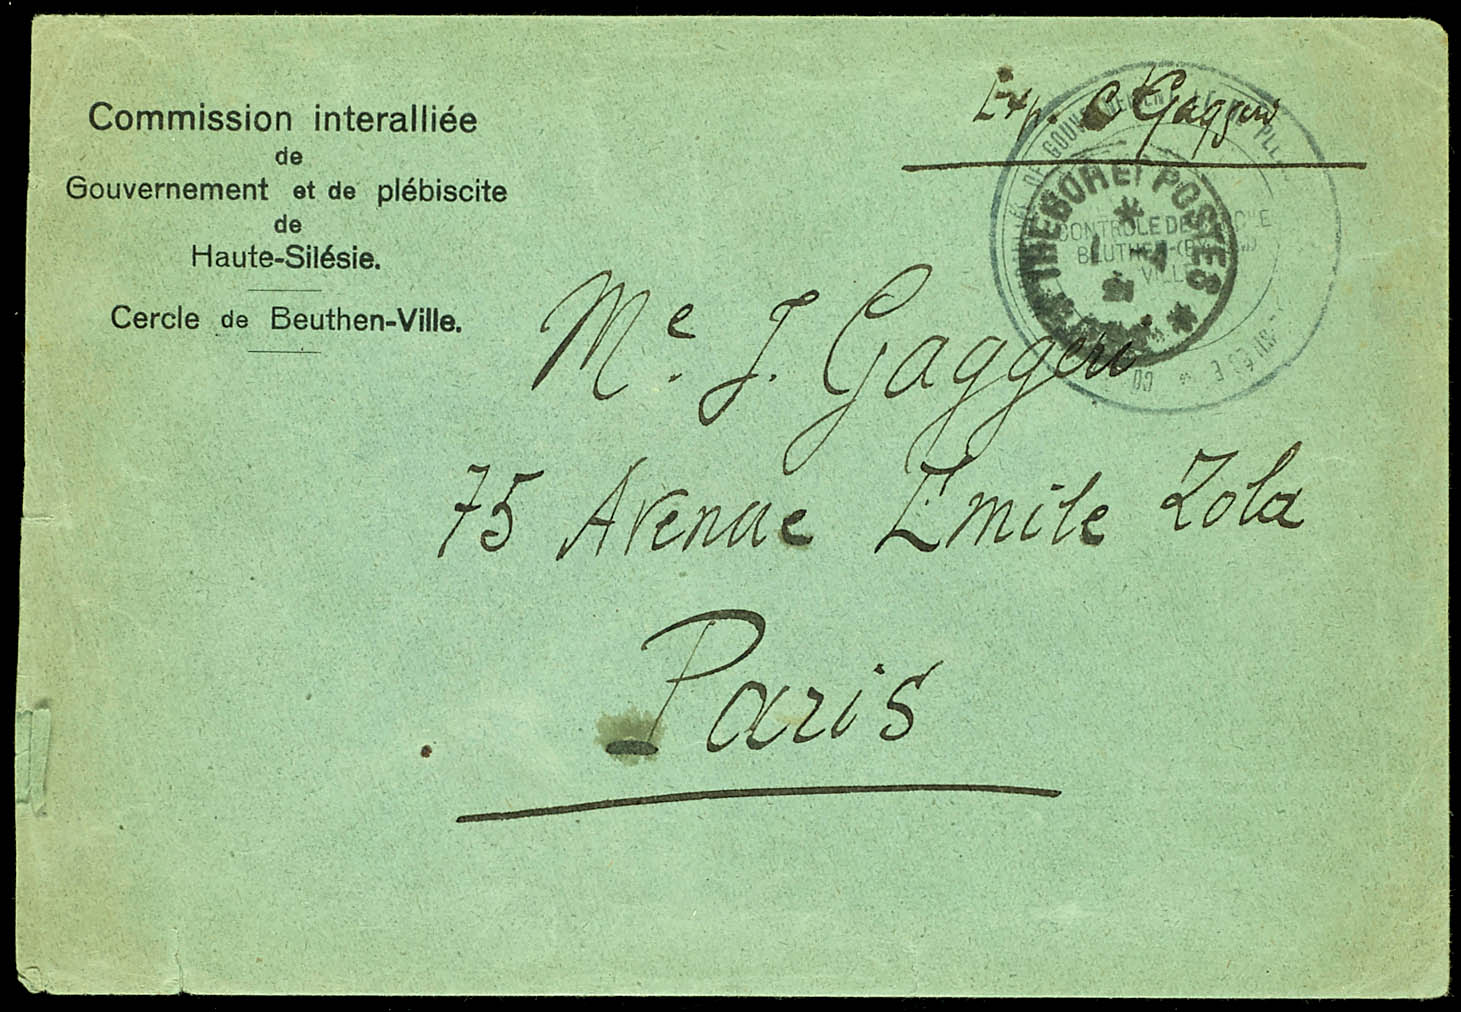 Commission interalliée
de
Gouvernement et de plébiscite
de
Haute-Silésie.
Cercle de Beuthen-Ville.
Exp. C Gaggero
CONTROLE DE
BEUTHEN
VILLE
POSTES
Me. J. Gaggero
75 Avenue Emile Zola
Paris